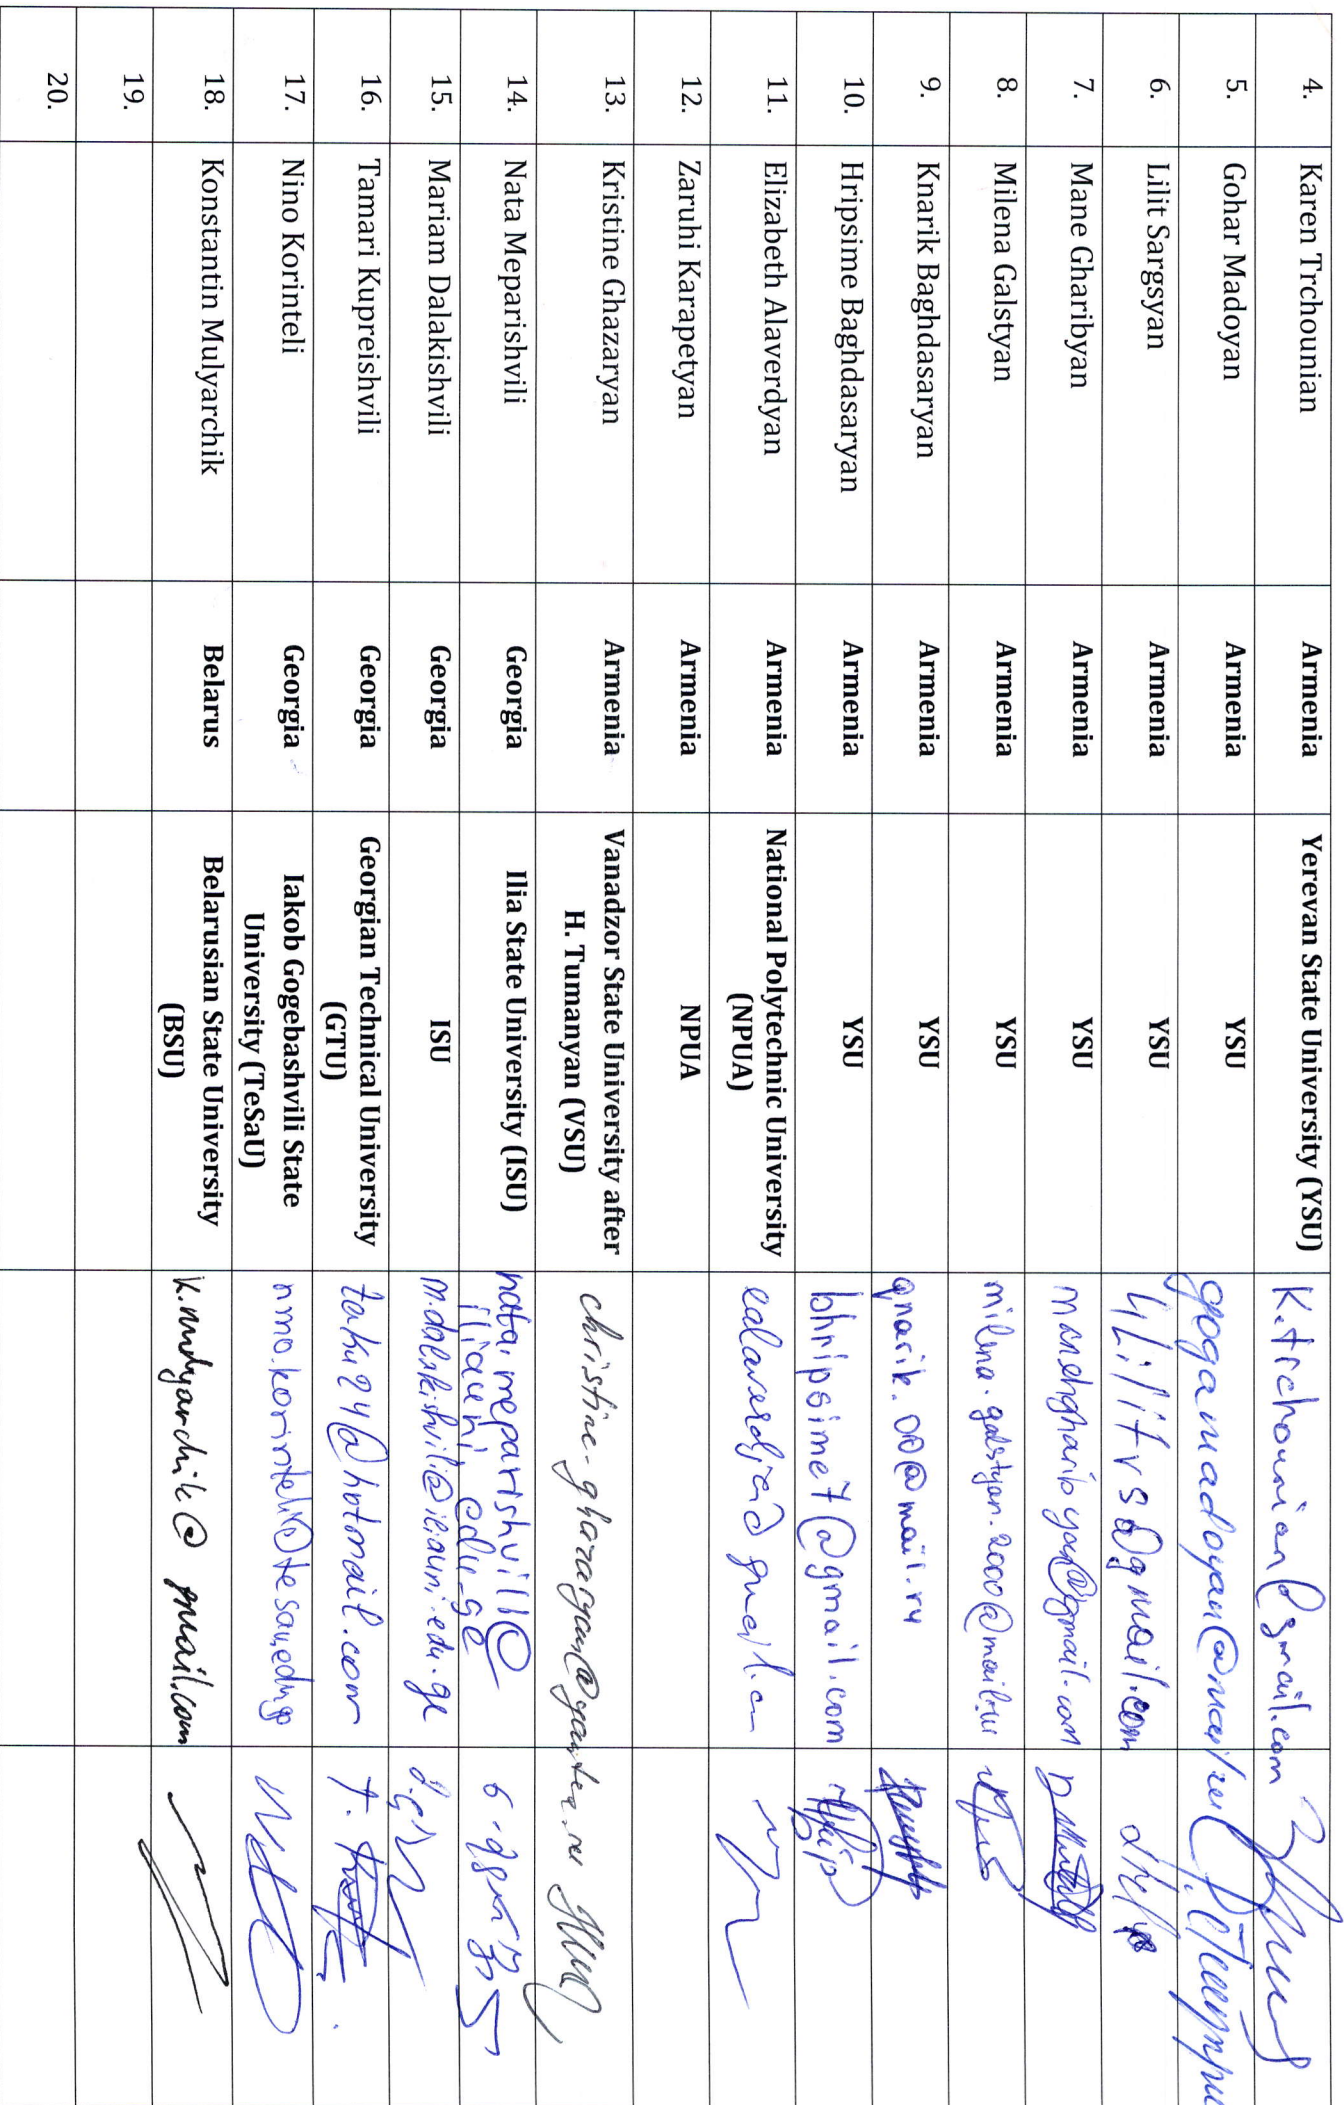 4. Karen Trchounian Armenia Yerevan State University (YSU) k.trchounian@gmail.com
5. Gohar Madoyan Armenia YSU gogamadoyan@mail.ru
6. Lilit Sargsyan Armenia YSU
7. Mane Gharibyan Armenia YSU manehgharibyan@gmail.com
8. Milena Galstyan Armenia YSU milena.galstyan.2000@mail.ru
9. Knarik Baghdasaryan Armenia YSU qnarik.00@mail.ru
10. Hripsime Baghdasaryan Armenia YSU bhripsime7@gmail.com
11. Elizabeth Alaverdyan Armenia National Polytechnic University
(NPUA)
12. Zaruhi Karapetyan Armenia NPUA
13. Kristine Ghazaryan Armenia Vanadzor State University after
H. Tumanyan (VSU) christine-ghazaryan@yandex.ru
14. Nata Meparishvili Georgia Ilia State University (ISU) nata.meparishvili@
iliauni.edu.ge
15. Mariam Dalakishvili Georgia ISU m.dalakishvili@iliauni.edu.ge
16. Tamari Kupreishvili Georgia Georgian Technical University
(GTU) taku24@hotmail.com
17. Nino Korinteli Georgia Iakob Gogebashvili State
University (TeSaU) nino.korinteli@tesau.edu.ge
18. Konstantin Mulyarchik Belarus Belarusian State University
(BSU) k.mulyarchik@gmail.com
19.
20.